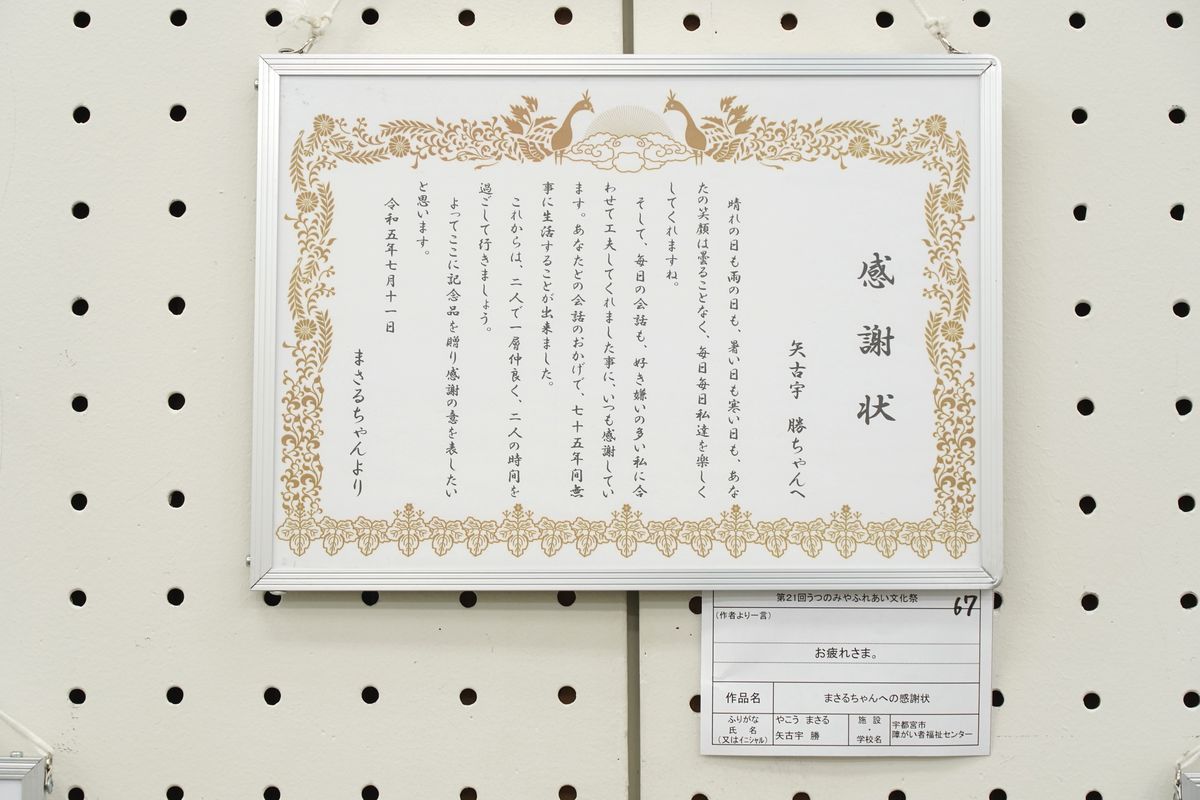 感謝状
矢古宇　勝ちゃんへ
晴れの日も雨の日も、暑い日も寒い日も、あな
たの笑顔は曇ることなく、毎日毎日私達を楽しく
してくれますね。
そして、毎日の会話も、好き嫌いの多い私に合
わせて工夫してくれました事に、いつも感謝してい
ます。あなたとの会話のおかげで、七十五年間無
事に生活することが出来ました。
これからは、二人で一層仲良く、二人の時間を
過ごして行きましょう。
よってここに記念品を贈り感謝の意を表したい
と思います。
令和五年七月十一日
まさるちゃんより
第21回うつのみやふれあい文化祭
67
(作者より一言)
お疲れさま。
作品名
まさるちゃんへの感謝状
ふりがな
氏　名
(又はイニシャル)
やこう　まさる
矢古宇　勝
施　設
・
学校名
宇都宮市
障がい者福祉センター